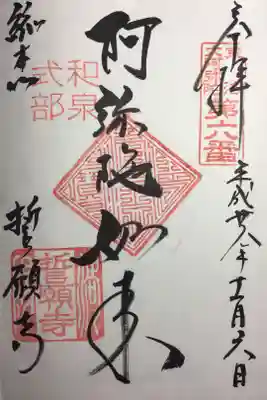 奉拝
第六番
平成廿八年十一月六日
阿弥陀如来
和泉
式部
誓願寺
誓願寺